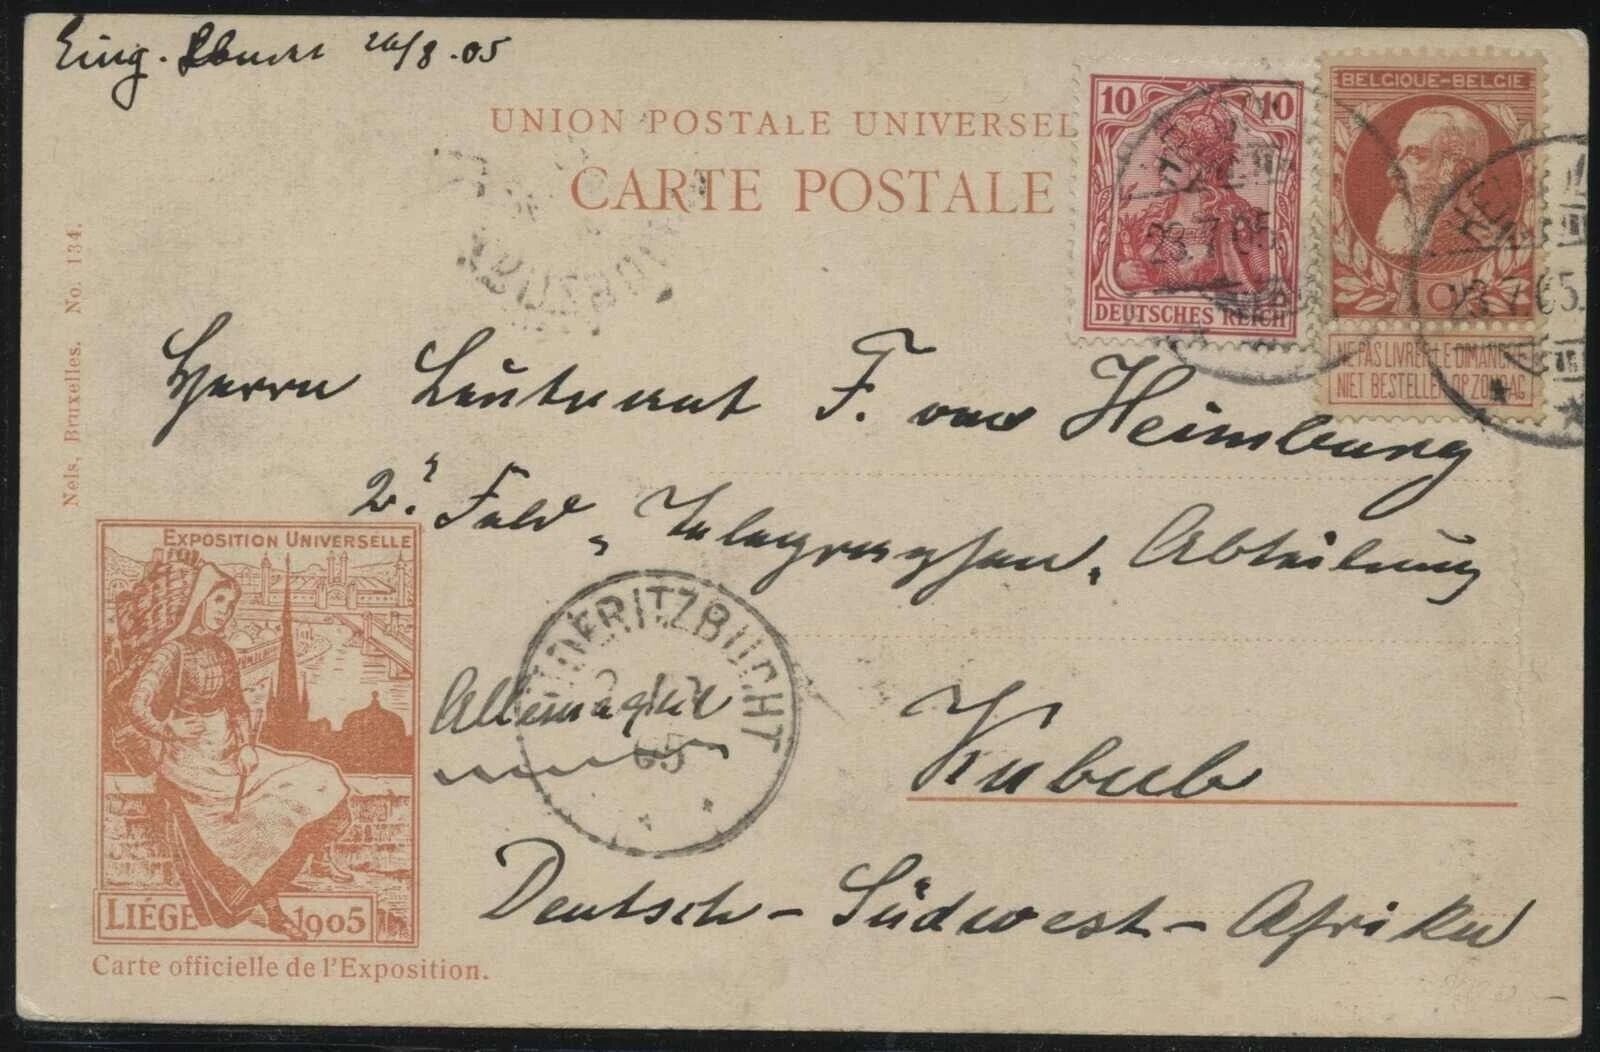 Eing. 26/8.05
UNION POSTALE UNIVERSEL
CARTE POSTALE
10 10
DEUTSCHES REICH
23.7.05
BELGIQUE-BELGIE
NE PAS LIVRER LE DIMANCHE
NIET BESTELLEN OP ZONDAG
23.7.05.
Nels, Bruxelles. No. 134.
Herrn Leutnant F. von Heimburg
2. Feld-Telegraphen-Abteilung
LÜDERITZBUCHT
05
Allemagne
Kubub
Deutsch-Südwest-Afrika
EXPOSITION UNIVERSELLE
LIÉGE 1905
Carte officielle de l'Exposition.